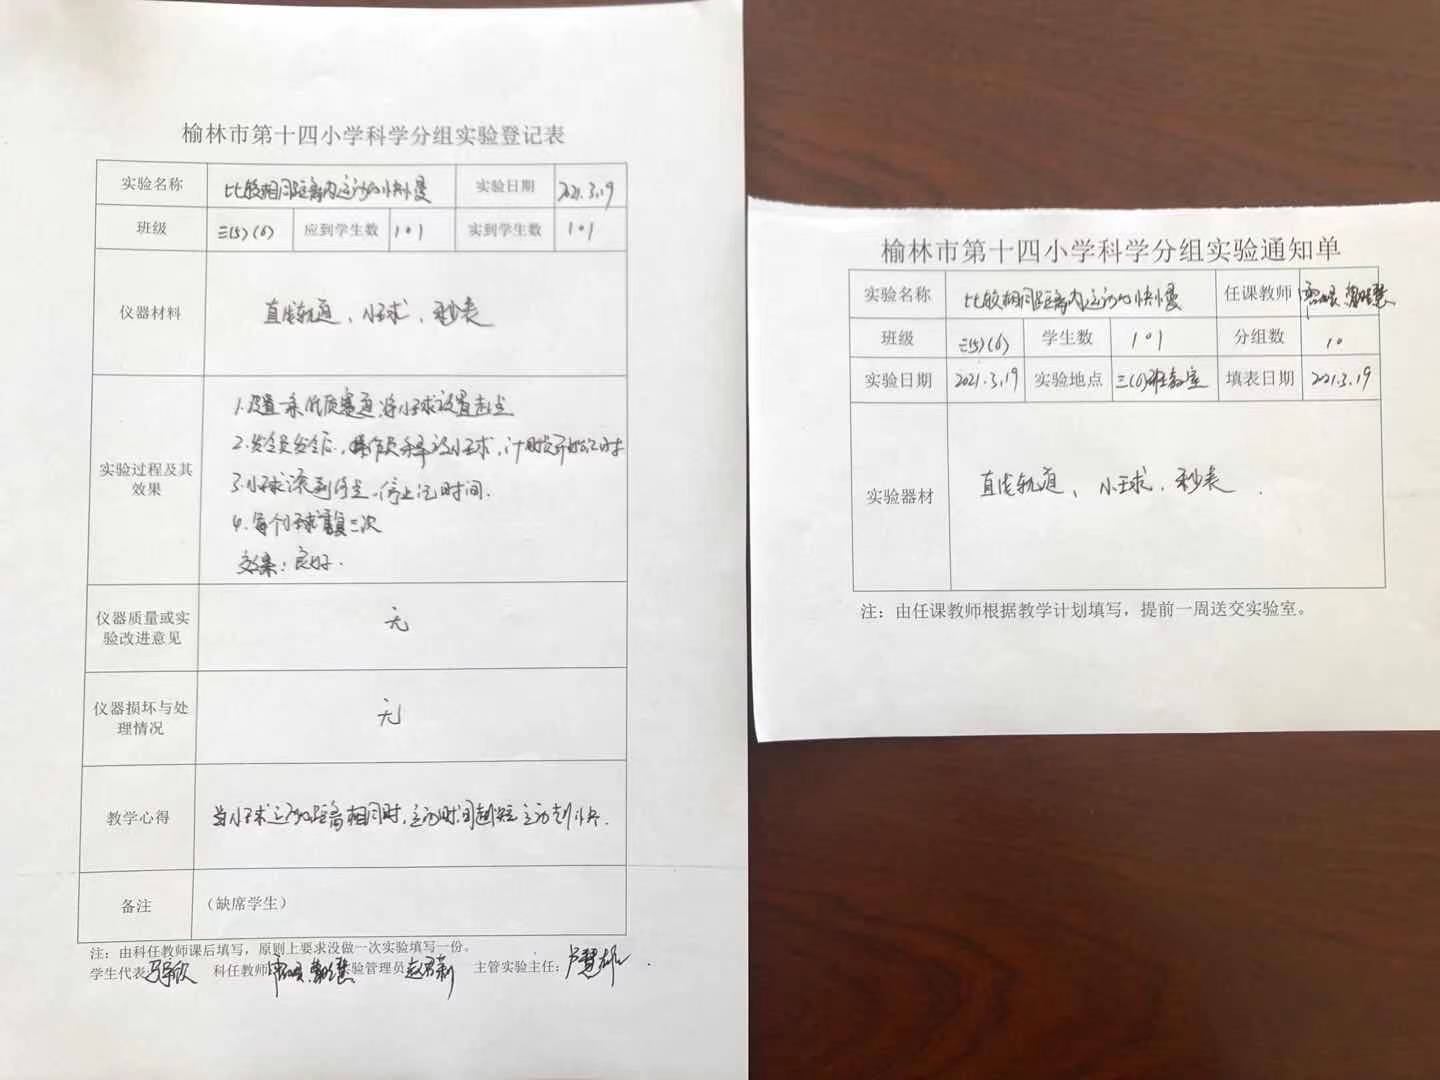 榆林市第十四小学科学分组实验登记表
实验名称 比较相同距离内运动的快慢 实验日期 2021.3.19
班级 三(5)(6) 应到学生数 101 实到学生数 101
仪器材料 直线轨道、小球、秒表
实验过程及其
效果
1.设置一条 质赛道,将小球放置起点
2.发令员发令后,操作员释放小球,计时员开始记时
3.小球滚到终点,停止记时间.
4.每个小球重复三次
效果:良好.
仪器质量或实
验改进意见
无
仪器损坏与处
理情况
无
教学心得 当小球运动距离相同时,运动时间越短运动越快.
备注 (缺席学生)
注:由科任教师课后填写,原则上要求没做一次实验填写一份。
学生代表 科任教师 实验管理员 主管实验主任:
榆林市第十四小学科学分组实验通知单
实验名称 比较相同距离内运动的快慢 任课教师
班级 三(5)(6) 学生数 101 分组数 10
实验日期 2021.3.19 实验地点 三(6)班教室 填表日期 2021.3.19
实验器材 直线轨道、小球、秒表.
注:由任课教师根据教学计划填写,提前一周送交实验室。